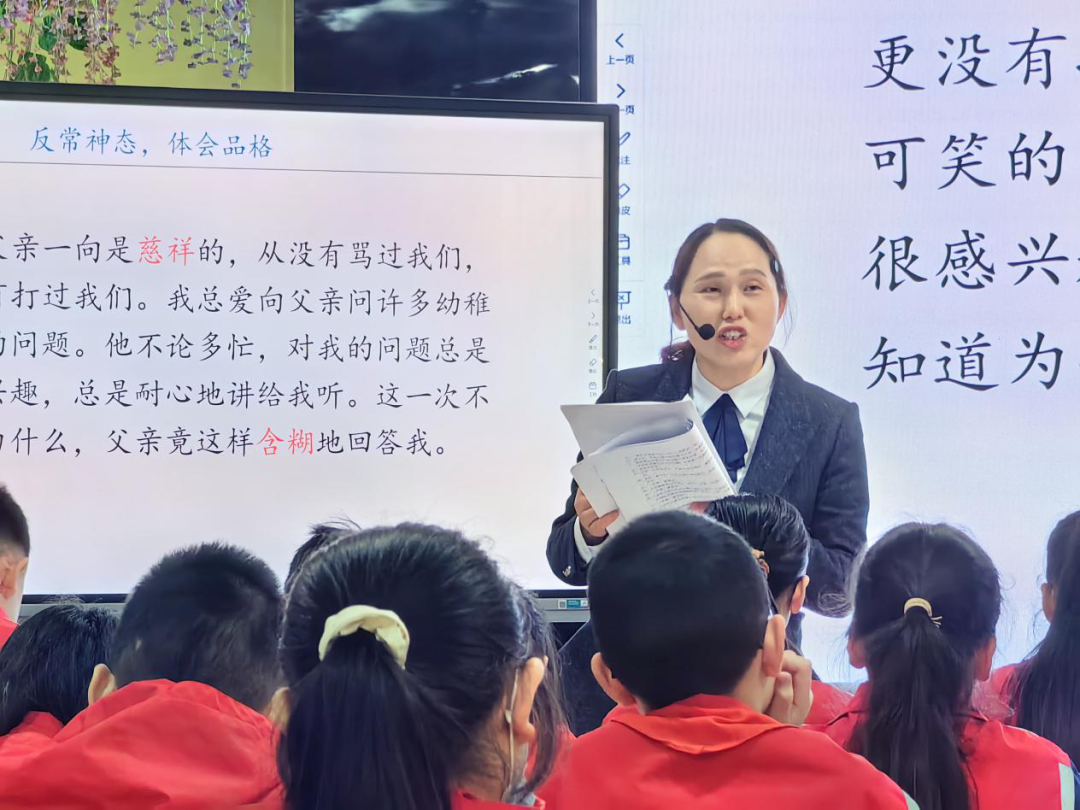 反常神态，体会品格
亲一向是慈祥的，从没有骂过我们，
打过我们。我总爱向父亲问许多幼稚
问题。他不论多忙，对我的问题总是
趣，总是耐心地讲给我听。这一次不
什么，父亲竟这样含糊地回答我。
上一页
一页
更没有
可笑的
很感兴
知道为